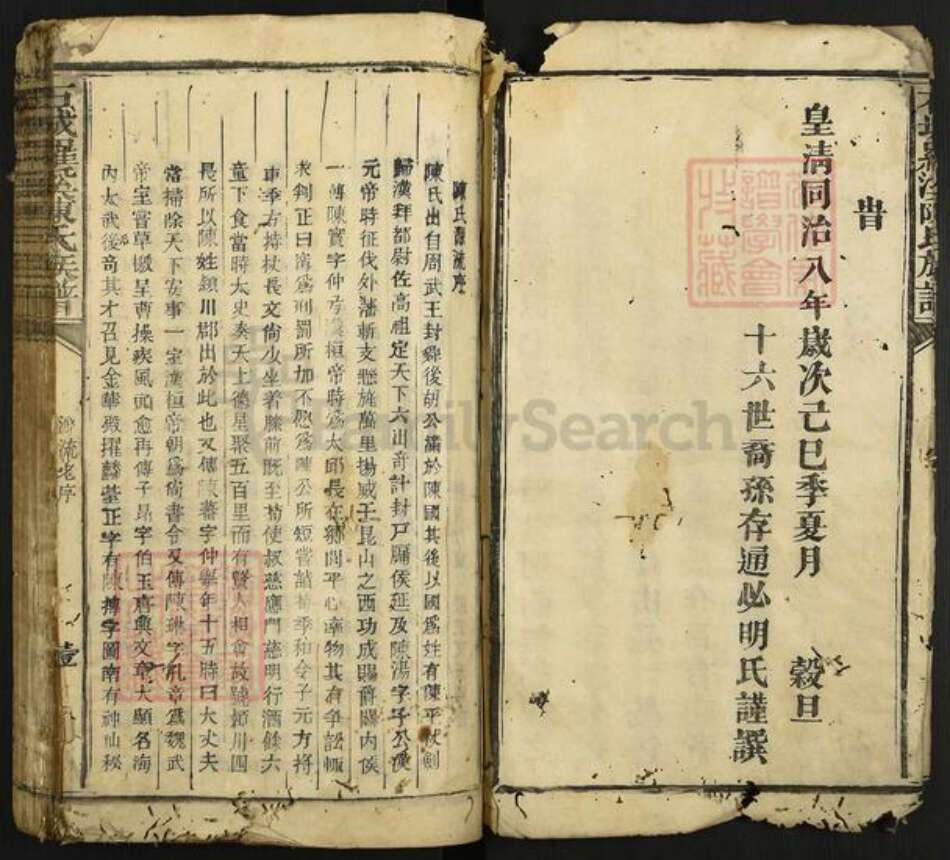 旹
皇清同治八年歲次己巳季夏月 穀旦
十六世裔孫存通必明氏謹譔
陳氏源流序
陳氏出自周武王封舜後胡公滿於陳國其後以國爲姓有陳平杖劍
歸漢拜都尉佐高祖定天下六出奇計封戸牖侯延及陳湯字子公漢
元帝時征伐外藩斬支懸旌萬里揚威于昆山之西功成賜爵關内侯
一傳陳寔字仲弓漢桓帝時爲太邱長在鄉閭平心率物其有爭訟輒
求判正曰寧爲刑罰所加不愿爲陳公所短嘗詣荀季和令子元方將
車季方持杖長文尚少坐着膝前既至荀使叔慈應門慈明行酒餘六
童下食當時太史奏天上德星聚五百里而有賢人相會故號潁川四
長所以陳姓潁川郡出於此也又傳陳蕃字仲舉年十五時曰大丈夫
當掃除天下安事一室漢桓帝朝爲尚書令又傳陳琳字孔章爲魏武
帝室嘗草檄呈曹操疾風頭愈再傳子昂字伯玉唐興文章大顯名海
内太武後奇其才召見金華殿擢麟臺正字有陳摶字圖南有神仙秘
石城羅溪陳氏族譜
源流老序
壹
FamilySearch